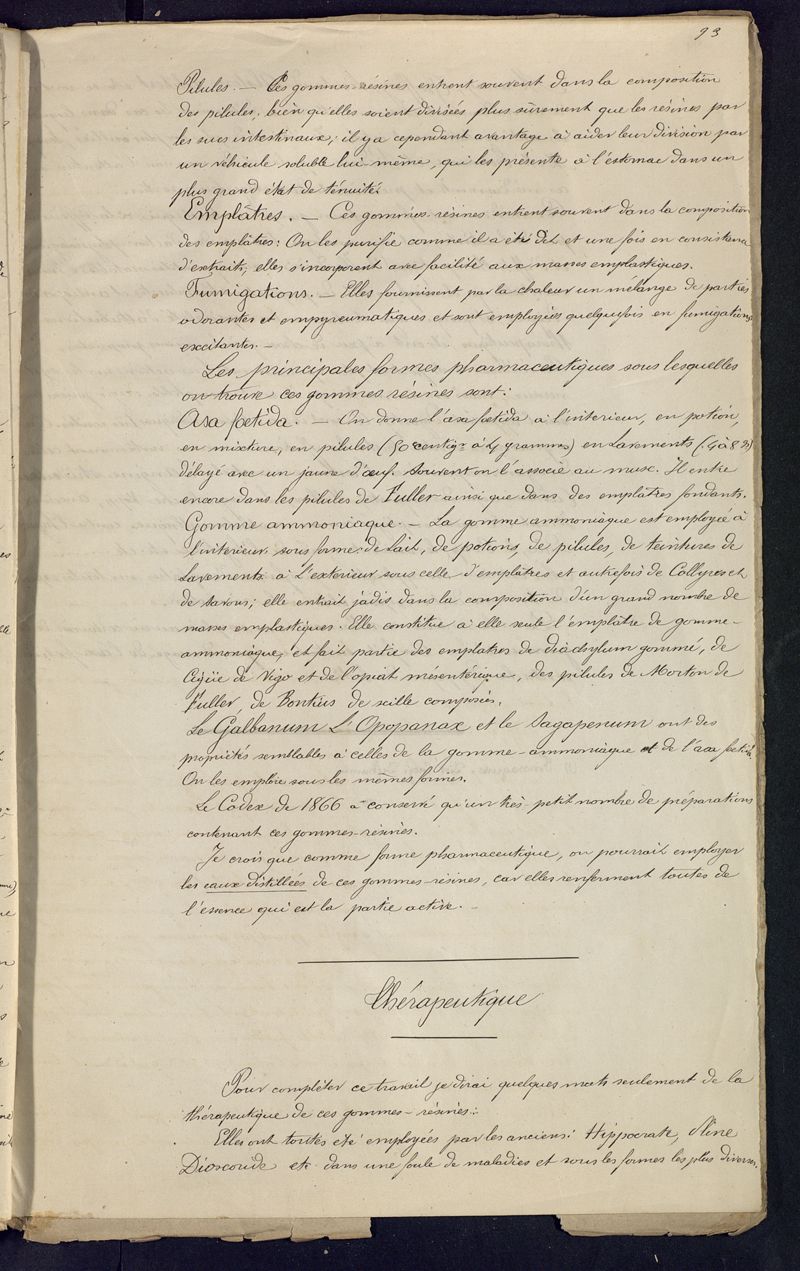 93
Pilules. — Ces gommes-résines entrent souvent dans la composition
des pilules, bien qu'elles soient divisées plus sûrement que les résines par
les sucs intestinaux; il y a cependant avantage à aider leur division par
un véhicule soluble lui-même, qui les présente à l'estomac dans un
plus grand état de ténuité.
Emplâtres. — Ces gommes-résines entrent souvent dans la composition
des emplâtres: On les purifie comme il a été dit et une fois en consistance
d'extrait, elles s'incorporent avec facilité aux masses emplastiques.
Fumigations. — Elles fournissent par la chaleur un mélange de parties
odorantes et empyreumatiques et sont employées quelquefois en fumigations
excitantes. —
Les principales formes pharmaceutiques sous lesquelles
on trouve ces gommes résines sont:
Asa fœtida. — On donne l'asa fœtida à l'interieur, en potion,
en mixture, en pilules (50 centigr à 4 grammes) en Lavements (4 à 8 gr)
délayé avec un jaune d'œuf. Souvent on l'associe au musc. Il entre
encore dans les pilules de Fuller ainsi que dans des emplâtres fondants.
Gomme ammoniaque. — La gomme ammoniaque est employée à
l'interieur sous forme de lait, de potions, de pilules, de teintures de
Lavements à l'exterieur sous celle d'emplâtres et autrefois de Collyres et
de savons; elle entrait jadis dans la composition d'un grand nombre de
masses emplastiques. Elle constitue à elle seule l'emplâtre de gomme-
ammoniaque, et fait partie des emplatres de diachylum gommé, de
Ciguë de Vigo et de l'opiat mésentérique, des pilules de Morton de
Fuller, de Bontius de scille composées.
Le Galbanum L'Opopanax et le Sagapenum ont des
propriétés semblables à celles de la gomme-ammoniaque et de l'asa fœtida
On les emploie sous les mêmes formes.
Le Codex de 1866 a conservé qu'un très petit nombre de préparations
contenant ces gommes-résines.
Je crois que comme forme pharmaceutique, on pourrait employer
les eaux distillées de ces gommes-résines, car elles renferment toutes de
l'essence qui est la partie active. —
Thérapeutique
Pour compléter ce travail je dirai quelques mots seulement de la
thérapeutique de ces gommes-résines:
Elles ont toutes eté employées par les anciens: Hippocrate, Pline
Dioscoride etc. dans une foule de maladies et sous les formes les plus diverses.